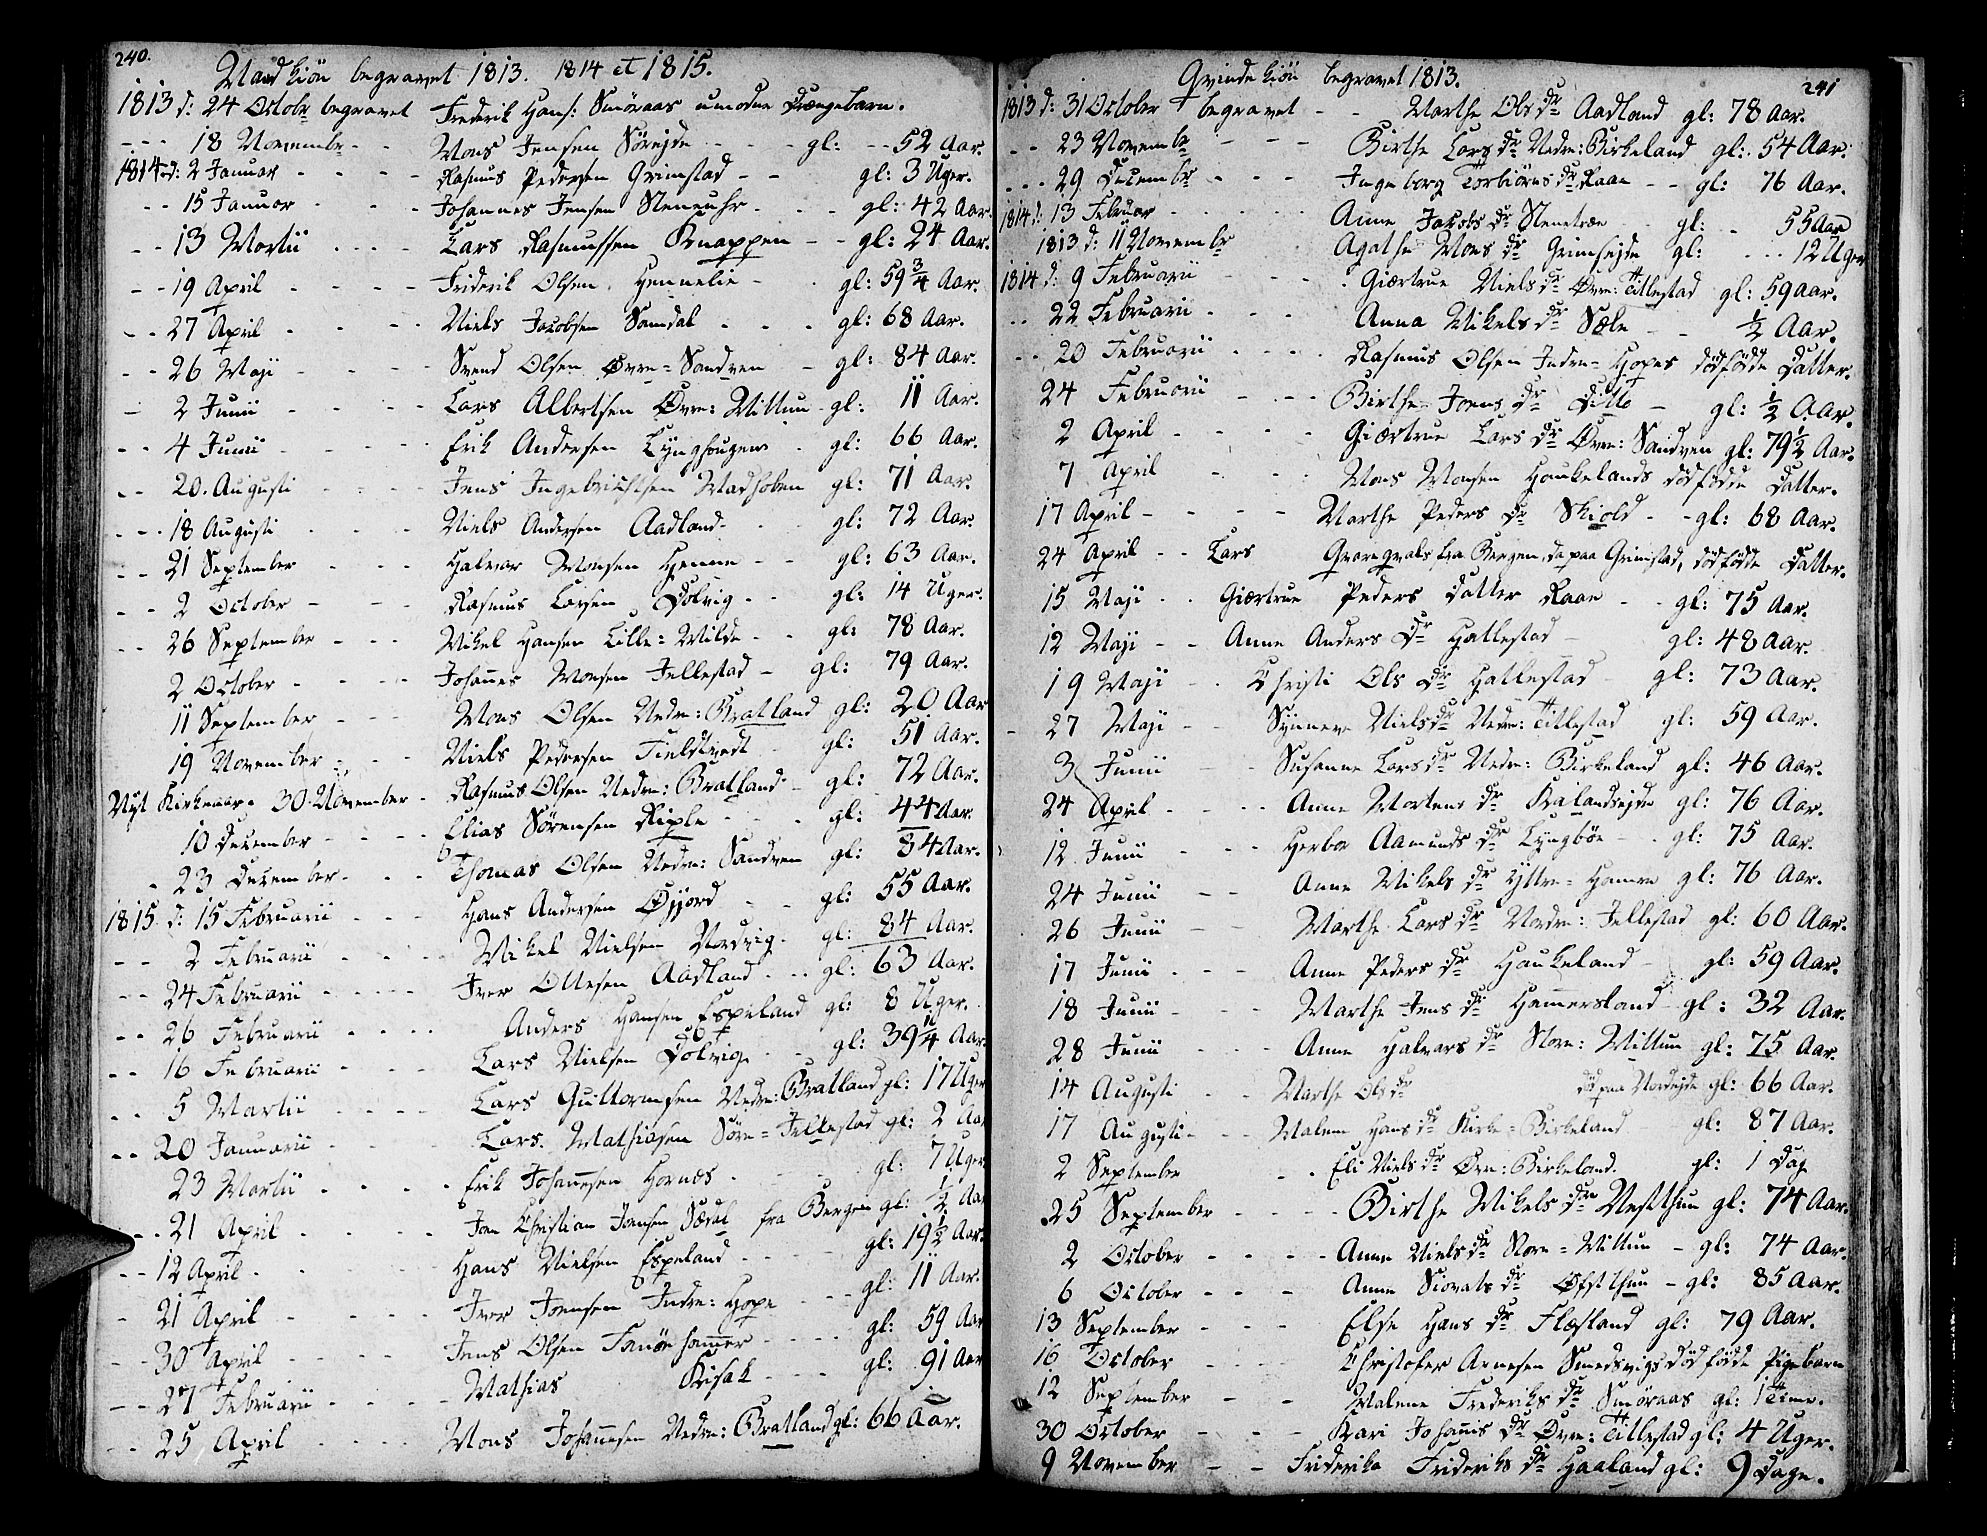 240.
Mandkiøn begravet 1813. 1814 et 1815.
1813 d: 24 Octobr begravet Frederik Hans: Smøraas umodne Drængebarn.
--- 18 Novembr - - Mons Jensen Sørejde - - - gl: -- 52 Aar.
1814 d: 2 Januar - - - - Rasmus Pedersen Grimstad - - gl: 3 Uger.
-- 15 Januar - - - - Johannes Jensen Steneuhr - - - gl: 42 Aar.
-- 13 Martii - - - - Lars Rasmussen Knappen - - gl: 24 Aar.
-- 19 April - - - - Friderik Olsen Hennelie - gl: 59 3/4 Aar.
-- 27 April - - - - Niels Jacobsen Samdal - - - gl: 68 Aar.
-- 26 Maji - - - - Svend Olsen Øvre=Sandven - gl: 84 Aar.
- 2 Junii - - - - Lars Albertsen Øvre: Mittun - gl: 11 Aar.
-- 4 Junii - - - - Erik Andersen Lynghougen - gl: 66 Aar.
-- 20. Augusti - - - Jens Ingebrichtsen Madhoben gl: 71 Aar.
--- 18 Augusti - - - Niels Andersen Aadland - - gl: 72 Aar.
-- 21 September - - - Halvor Monsen Henne - - gl: 63 Aar.
-- 2 October - - - Rasmus Larsen Dolvig - - gl: 14 Uger.
-- 26 September - - - Mikel Hansen Lille=Milde - - gl: 78 Aar.
2 October - - - - Johannes Monsen Jellestad - gl: 79 Aar.
11 September - - - Mons Olsen Nedre: Bratland gl: 20 Aar
19 November - - - Niels Pedersen Tieldtvedt - gl: 51 Aar.
Nyt Kirkeaar. 30. November - Rasmus Olsen Nedre: Bratland - gl: 72 Aar.
10 December - - - - Elias Sørensen Riple - - - gl: 44 Aar.
- 23 December - - - Thomas Olsen Nedre: Sandven gl: 54 Aar.
1815. d: 15 Februarii - - - Hans Andersen Øyjord - - gl: 55 Aar.
-- 2 Februarii - - - - Mikel Nielsen Nordvig - gl: 84 Aar.
-- 24 Februarii - - - - Iver Ottesen Aadland - - gl: 63 Aar.
-- 26 Februarii - - - - Anders Hansen Espeland gl: 8 Uger.
-- 16 Februarii - - - - Lars Nielsen Dolvig - - gl: 39 11/4 Aar.
-- 5 Martii - - - - Lars Guttormsen Nedre: Bratland gl: 17 Uger
-- 20 Januarii - - - - Lars. Mathiasen Søre=Jellestad gl: 2 Aar
23 Martii - - - - Erik Johannesen Hornæs - - - gl: 7 Uger
-- 21 April - - - - Jon Christian Joensen Sædal fra Bergen gl: 1/2 Aar
-- 12 April - - - - Hans Nielsen Espeland - - - - gl: 19 1/2 Aar.
- 21 April - - - - Iver Joensen Indre: Hope - - - gl: 11 Aar.
-- 30 April - - - - Jens Olsen Fanøehammer - - - - gl: 59 Aar
-- 27 Februarii - - - - Mathias Krisak - - - gl: 91 Aar
-- 25 April - - - - Mons Johannesen Nedre: Bratland gl: 66 Aar.
241
Qvindekiøn begravet 1813.
1813 d: 31 October begravet - - Marthe Ols dr Aadland gl: 78 Aar.
-- 23 Novembr - - - Birthe Lars dr Nedre: Birkeland gl: 54 Aar.
--- 29 Decembr - - - Ingeborg Torbiørns dr Raae - - gl: 76 Aar.
1814 d: 13 Februar - - - - - Anne Jakobs dr Stenetræe gl: - 55 Aar
1813 d: 11 Novembr Agathe Mons dr Grimsejde gl: - - - 12 Uger
1814 d: 9 Februarii - - - Giærtrue Niels dr Øvre: Titlestad gl: 59 aar.
-- 22 Februarii - - - - Anna Mikels dr Sæle - - 1/2 Aar.
-- 20 Februarii - - - - Rasmus Olsen Indre=Hopes dødfødde Datter.
24 Februarii - - - - Birthe Joens dr Ditto - gl: 1/2 Aar.
2 April - - - - Giærtrue Lars dr Øvre: Sandven gl: 79 1/2 Aar.
7 April - - - Mons Monsen Haukelands dødfødde Datter.
17 April - - - - - Marthe Peders dr Skiold - - gl: 68 Aar.
24 April - - Lars Qvaregvals fra Bergen, da paa Grimstad, dødfødde Datter.
15 Maji - - Giærtrue Peders Datter Raae - - gl: 75 Aar.
12 Maji - - Anne Anders Dr Hatlestad - gl: 48 Aar.
19 Maji - - Christi Ols Dr Hatlestad - gl: 73 Aar.
- 27 Maji - - Synneve Niels dr Nedre: Titlestad gl: 59 Aar.
3 Junii - - Susanne Lars dr Nedre: Birkeland gl: 46 Aar.
24 April - - - - Anne Mortens dr Kalandsejde gl: 76 Aar.
12 Junii - - - Herbor Aamunds dr Lyngbøe - - gl: 75 Aar.
24 Junii - - Anne Mikels dr Yttre=Hamre gl: 76 Aar.
26 Junii - - Marthe Lars dr Nordre: Jellestad gl: 60 Aar.
17 Junii - - - Anne Peders dr Haukeland - gl: 59 Aar.
18 Junii - - - Marthe Jens dr Hammersland - gl: 32 Aar.
28 Junii - - - Anne Halvars dr Store: Mittun gl: 75 Aar.
14 Augusti - - Marthe Ols dr død paa Nordejde gl: 66 Aar.
17 Augusti - - Malene Hans dr Kirke=Birkeland gl: 87 Aar.
2 September - - Eli Niels dr Øvre: Birkeland. gl: 1 Dag
25 September - - - - Birthe Mikels dr Nestthun gl: 74 Aar.
2 October - - - - Anne Niels dr Store=Mittun - gl: 74 Aar.
6 October - - - Anne Siovats dr Øfstthun - gl: 85 Aar.
13 September - - - Else Hans dr Flæsland gl: 79 Aar.
16 October - - - - Christofer Arnesen Smedsvigs dødfødde Pigebarn
12 September - - Malene Frederiks dr Smøraas gl: 1 Time.
30 October - - - Kari Johannis Dr Øvre: Titlestad gl: 4 Uger.
9 November - - Friderike Frideriks Dr Haaland gl: 9 Dage.